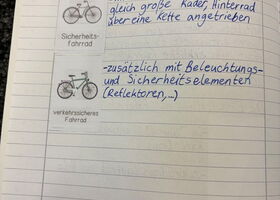 gleich große Räder, Hinterrad
über eine Kette angetrieben
Sicherheits-
fahrrad
-zusätzlich mit Beleuchtungs-
und Sicherheitselementen
(Reflektoren,...)
verkehrssicheres
Fahrrad